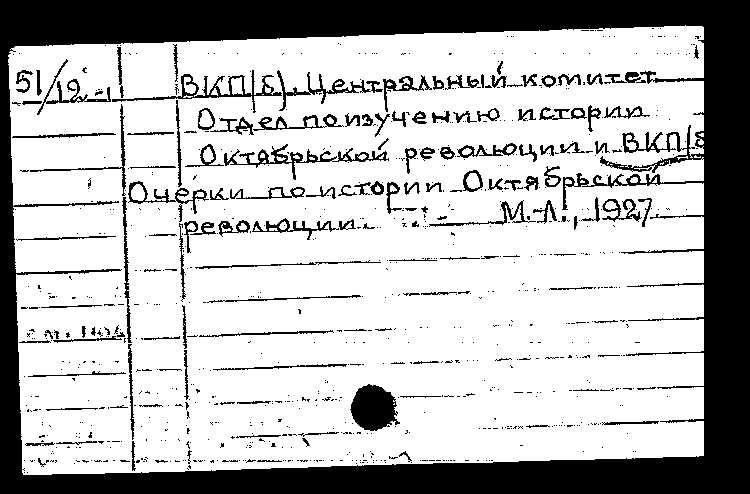 51/12-1 ВКП(б). Центральный комитет
Отдел по изучению истории
Октябрьской революции и ВКП(б
Очерки по истории Октябрьской
революции. М.-Л., 1927.